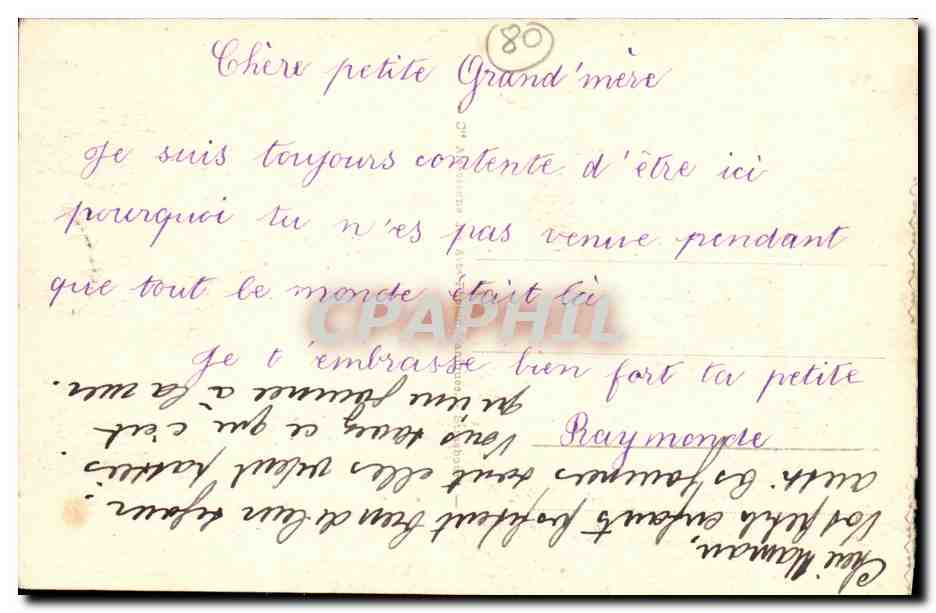 80
Chère petite Grand'mère
Je suis toujours contente d'être ici
pourquoi tu n'es pas venue pendant
que tout le monde était là
Je t'embrasse bien fort ta petite
Raymonde
CPARHIL
Chère Maman,
Vos petits enfants profitent bien de leur séjour
aussi les journées sont elles vitent passées
Vous savez ce que c'est
qu'une journée à la mer.